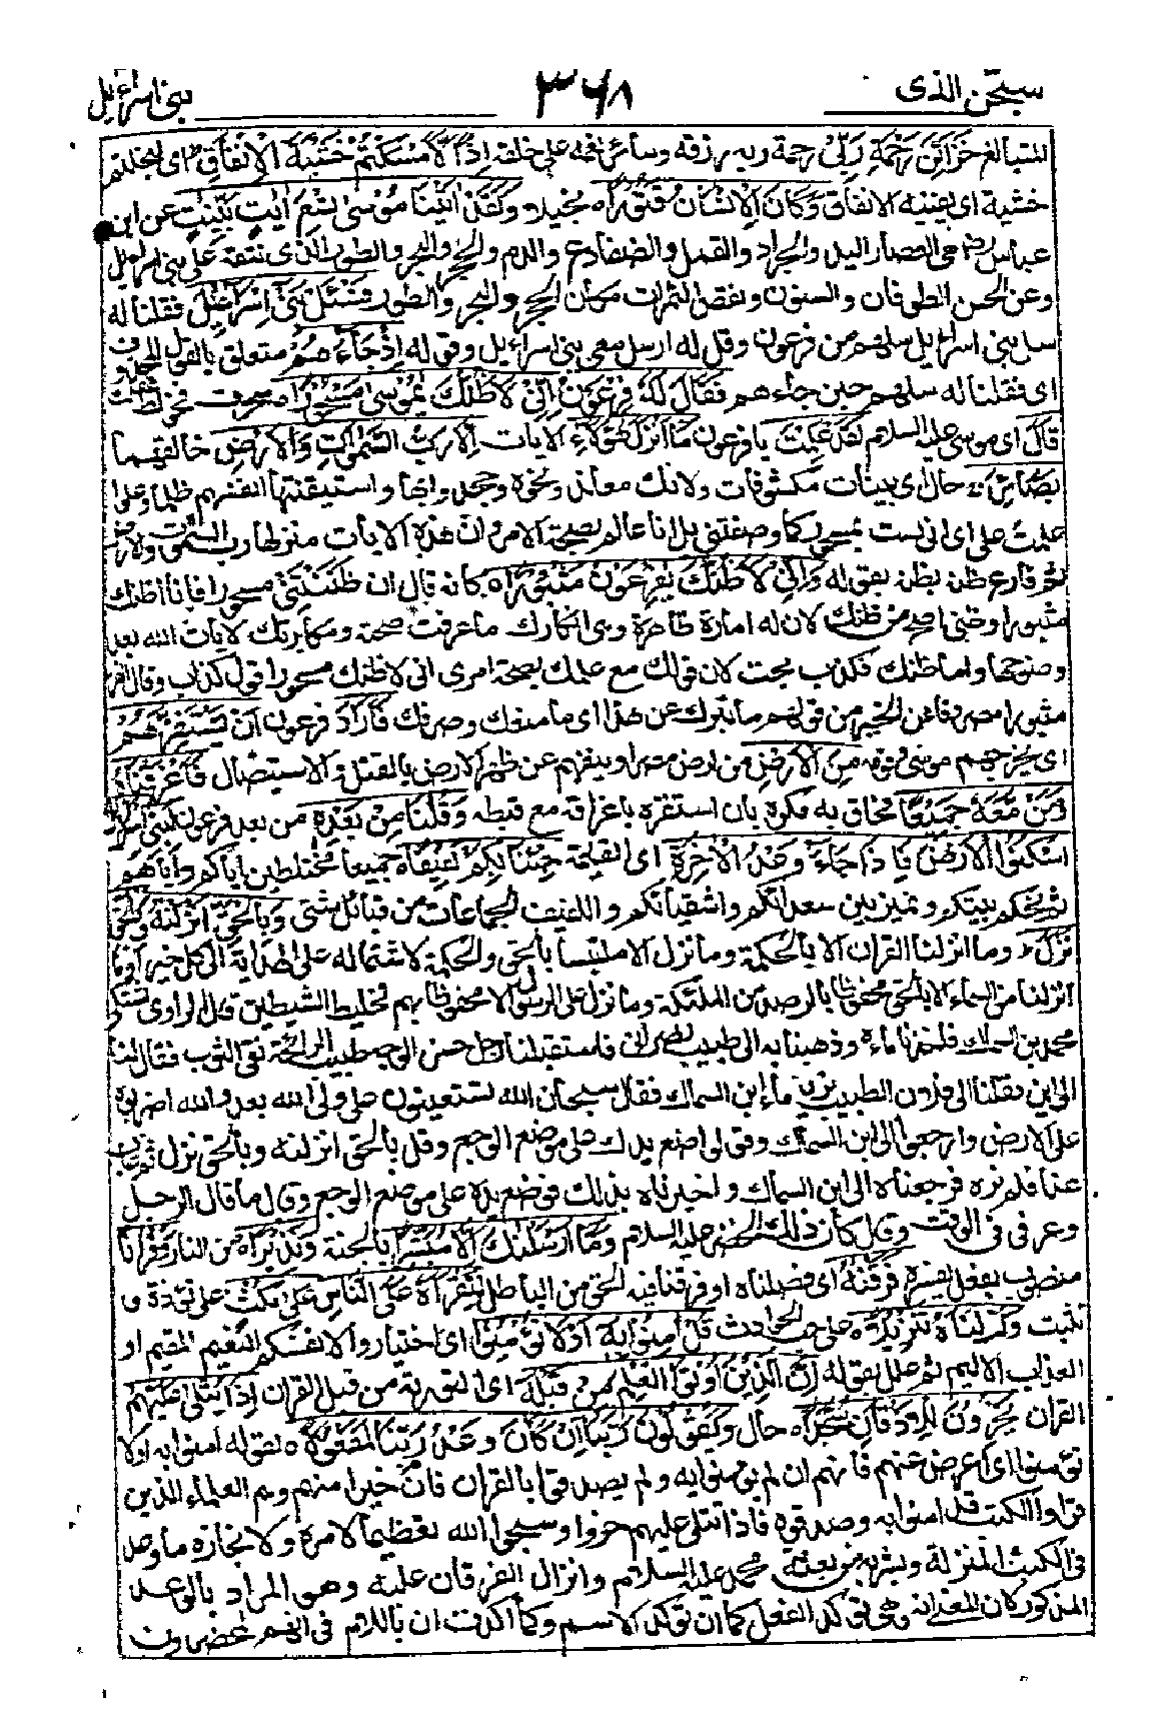 سبحن الذى ٣٦٨ بنى اسرائيل
للمتبالغ خَزَائِنَ رَحْمَةِ رَبِّىْ رحمة ربه رزقه وسائر نعمه على خلقه اِذًا لَّاَمْسَكْتُمْ خَشْيَةَ الْاِنْفَاقِ اى لبخلتم
خشية اى يفنيه الانفاق وَكَانَ الْاِنْسَانُ قَتُوْرًا بخيلا وَلَقَدْ اٰتَيْنَا مُوْسٰى تِسْعَ اٰيٰتٍ بَيِّنٰتٍ عن ابن
عباس رضى هى العصا واليد والجراد والقمل والضفادع والدم والحجر والبحر والطور الذى نتقه على بنى اسرائيل
وعن الحسن الطوفان والسنون ونقص الثمرات مكان الحجر والبحر والطور فَسْئَلْ بَنِىْ اِسْرَائِيْلَ فقلنا له
سل بنى اسرائيل سلهم من فرعون وقل له ارسل معى بنى اسرائيل وقوله اِذْ جَاءَهُمْ متعلق بالقول المحذوف
اى فقلنا له سلهم حين جاءهم فَقَالَ لَهٗ فِرْعَوْنُ اِنِّىْ لَاَظُنُّكَ يٰمُوْسٰى مَسْحُوْرًا سحرت فخولط عقلك
قَالَ اى موسى عليه السلام لَقَدْ عَلِمْتَ يا فرعون مَا اَنْزَلَ هٰؤُلَاءِ الايات اِلَّا رَبُّ السَّمٰوٰتِ وَالْاَرْضِ خالقهما
بَصَائِرَ حال اى بينات مكشوفات ولانك معاند ونحوه وجحدوا بها واستيقنتها انفسهم ظلما وعلوا
علمت على اى انى لست بمسحور كما وصفتنى بل انا عالم بصحة الامر وان هذه الايات منزلها رب السموت والارض
ثم قارع ظنه بظنه بقوله وَاِنِّىْ لَاَظُنُّكَ يٰفِرْعَوْنُ مَثْبُوْرًا كانه قال ان ظننتنى مسحورا فانا اظنك
مثبورا وظنى اصح من ظنك لان له امارة ظاهرة وهى انكارك ما عرفت صحته ومكابرتك لايات الله بعد
وضوحها واما ظنك فكذب بحت لان قولك مع علمك بصحة امرى انى لاظنك مسحورا قول كذاب وقال الفراء
مثبورا مصروفا عن الخير من قولهم ما ثبرك عن هذا اى ما منعك وصرفك فَاَرَادَ فرعون اَنْ يَّسْتَفِزَّهُمْ
اى يخرجهم موسى وقومه مِنَ الْاَرْضِ من ارض مصر او ينفيهم عن ظهر الارض بالقتل والاستيصال فَاَغْرَقْنٰهُ
وَمَنْ مَّعَهٗ جَمِيْعًا فحاق به مكره بان استفزه باغراقه مع قبطه وَقُلْنَا مِنْ بَعْدِهٖ من بعد فرعون لِبَنِىْ اِسْرَائِيْلَ
اسْكُنُوا الْاَرْضَ فَاِذَا جَاءَ وَعْدُ الْاٰخِرَةِ اى القيامة جِئْنَا بِكُمْ لَفِيْفًا جميعا مختلطين اياكم واياهم
ثم يحكم بينكم ويميز بين سعدائكم واشقيائكم واللفيف الجماعات من قبائل شتى وَبِالْحَقِّ اَنْزَلْنٰهُ وَبِالْحَقِّ
نَزَلَ وما انزلنا القران الا بالحكمة وما نزل الا ملتبسا بالحق والحكمة لاشتماله على الهداية الى كل خير او ما
انزلنا من السماء الا بالحق محفوظا بالرصد من الملئكة وما نزل على الرسول الا محفوظا بهم من تخليط الشيطين قال الراوى اشتكى
محمد بن السماك فاخذنا ماءه وذهبنا به الى طبيب نصرانى فاستقبلنا رجل حسن الوجه طيب الرائحة نقى الثوب فقال لنا
الى اين فقلنا الى فلان الطبيب نريه ماء ابن السماك فقال سبحان الله تستعينون على ولى الله بعدو الله اضربوه
على الارض وارجعوا الى ابن السماك وقولوا له ضع يدك على موضع الوجع وقل بالحق انزلنه وبالحق نزل ثم غاب
عنا فلم نره فرجعنا الى ابن السماك واخبرناه بذلك فوضع يده على موضع الوجع وقال ما قال الرجل
وعوفى فى الوقت وقال كان ذلك الخضر عليه السلام وَمَا اَرْسَلْنٰكَ اِلَّا مُبَشِّرًا بالجنة وَّنَذِيْرًا من النار وَقُرْاٰنًا
منصوب بفعل يفسره فَرَقْنٰهُ اى فصلناه او فرقنا فيه الحق من الباطل لِتَقْرَاَهٗ عَلَى النَّاسِ عَلٰى مُكْثٍ على تؤدة و
تثبت وَنَزَّلْنٰهُ تَنْزِيْلًا على حسب الحوادث قُلْ اٰمِنُوْا بِهٖ اَوْ لَا تُؤْمِنُوْا اى اختاروا لانفسكم النعيم المقيم او
العذاب الاليم ثم علل بقوله اِنَّ الَّذِيْنَ اُوْتُوا الْعِلْمَ مِنْ قَبْلِهٖ اى التورية من قبل القران اِذَا يُتْلٰى عَلَيْهِمْ
القران يَخِرُّوْنَ لِلْاَذْقَانِ سُجَّدًا حال وَّيَقُوْلُوْنَ سُبْحٰنَ رَبِّنَا اِنْ كَانَ وَعْدُ رَبِّنَا لَمَفْعُوْلًا بقوله امنوا به او لا
تؤمنوا اى اعرض عنهم فانهم ان لم يؤمنوا به ولم يصدقوا بالقران فان خيرا منهم وهم العلماء الذين
قراوا الكتب قد امنوا به وصدقوه فاذا تتلى عليهم خروا وسبحوا الله تعظيما لامره ولانجازه ما وعد
فى الكتب المنزلة وبشر به من بعثة محمد عليه السلام وانزال القران عليه وهو المراد بالوعد
المذكور كان المعنى انه وهى تؤكد الفعل كما ان تؤكد الاسم وكما اكدت ان باللام فى انهم لمحضرون